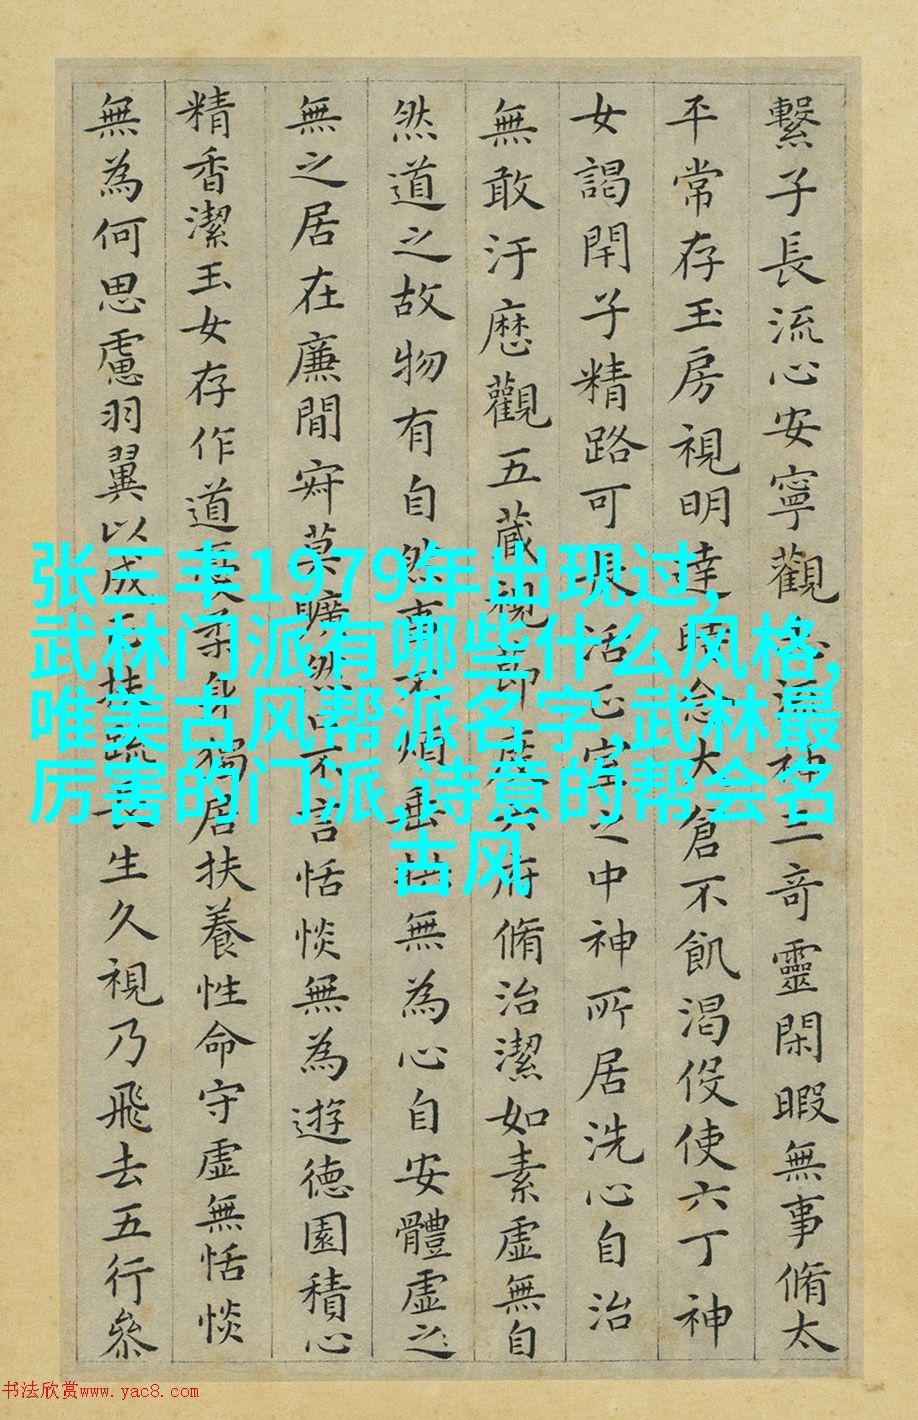 繫子長流心安寧觀志流神三奇靈閑暇無事脩太
平常存玉房視明達時念大倉不飢渴役使六丁神
女謁閇子精路可長活正室之中神所居洗心自治
無敢汙歷觀五藏視節度六府脩治潔如素虛無自
然道之故物有自然事不煩垂拱無為心自安體虛之
無之居在廉間寂莫曠然口不言恬惔無為遊德園積心
精香潔玉女存作道憂柔身獨居扶養性命守虛無恬惔
無為何思慮羽翼以成正扶疏長生久視乃飛去五行參
张三丰1979年出现过,
武林门派有哪些什么风格,
唯美古风帮派名字,武林最
厉害的门派,诗意的帮会名
古风
书法欣赏www.yac8.com